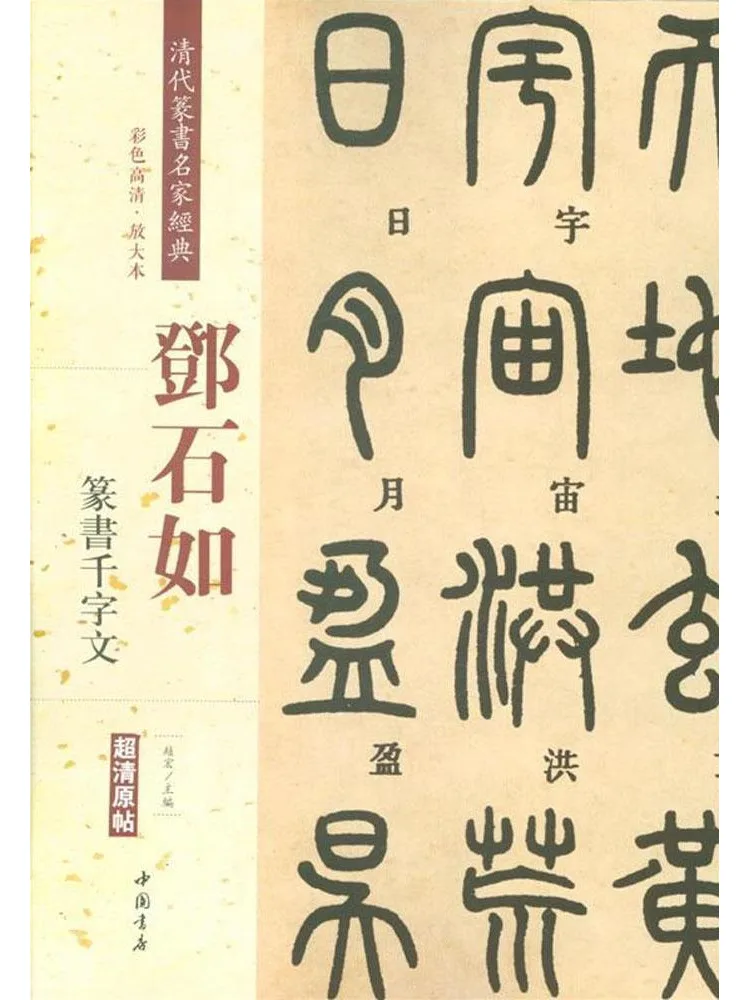 清代篆書名家經典
彩色高清·放大本
鄧石如
篆書千字文
超清原帖
趙宏/主編
中國書店
天地玄黃
宇宙洪荒
宇宙洪
日月盈昃
日月盈